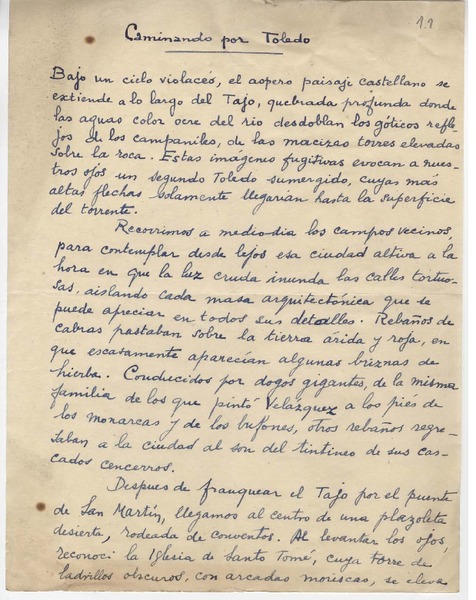 11
Caminando por Toledo
Bajo un cielo violaceo, el aspero paisaje castellano se
extiende a lo largo del Tajo, quebrada profunda donde
las aguas color ocre del rio desdoblan los góticos refle-
jos de los campaniles, de las macizas torres elevadas
sobre la roca. Estas imágenes fugitivas evocan a nues-
tros ojos un segundo Toledo sumergido, cuyas más
altas flechas solamente llegarían hasta la superficie
del torrente.
Recorrimos a medio-dia los campos vecinos,
para contemplar desde lejos esa ciudad altiva a la
hora en que la luz cruda inunda las calles tortuo-
sas, aislando cada masa arquitectónica que se
puede apreciar en todos sus detalles. Rebaños de
cabras pastaban sobre la tierra árida y roja, en
que escasamente aparecían algunas briznas de
hierba. Conducidos por dogos gigantes, de la misma
familia de los que pintó Velázquez a los piés de
los monarcas y de los bufones, otros rebaños regre-
saban a la ciudad al son del tintineo de sus cas-
cados cencerros.
Despues de franquear el Tajo por el puente
de San Martín, llegamos al centro de una plazoleta
desierta, rodeada de conventos. Al levantar los ojos,
reconocí la Iglesia de Santo Tomé, cuya torre de
ladrillos obscuros, con arcadas moriscas, se eleva